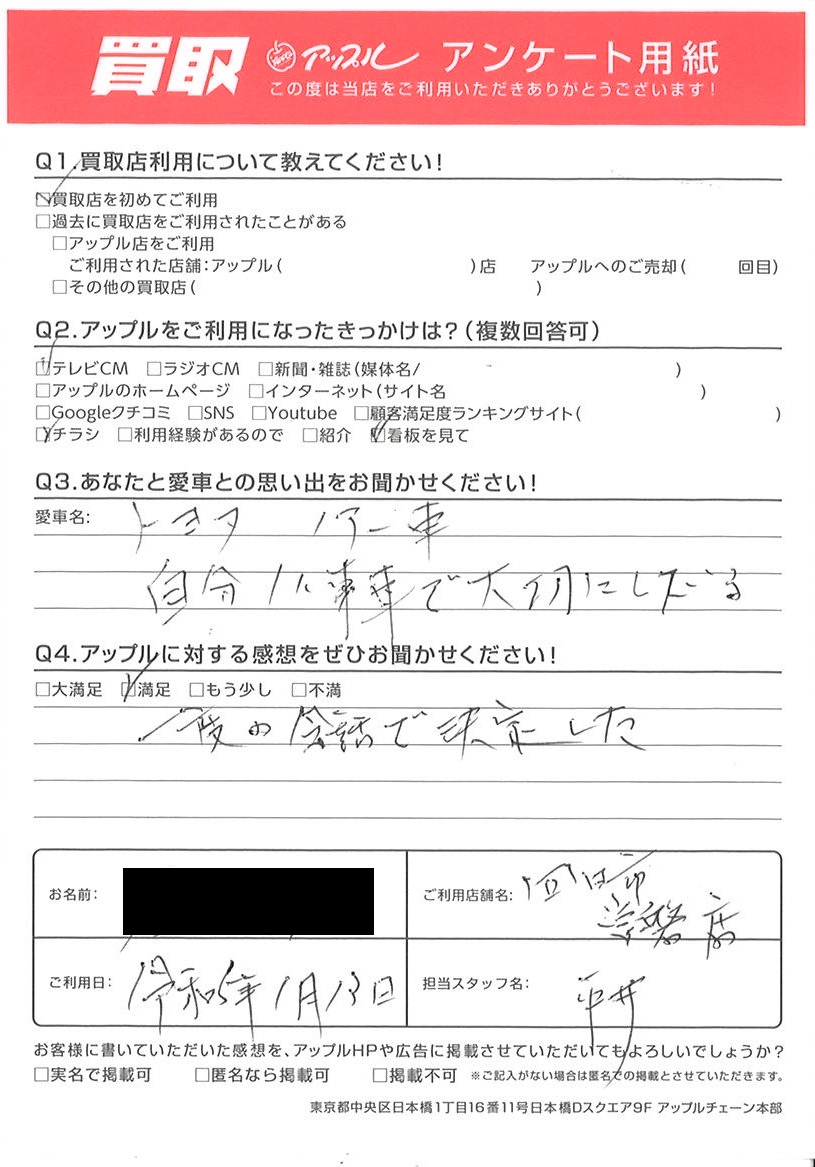 買取 アップル アンケート用紙
この度は当店をご利用いただきありがとうございます!
Q1.買取店利用について教えてください!
☑買取店を初めてご利用
□過去に買取店をご利用されたことがある
□アップル店をご利用
ご利用された店舗:アップル( )店 アップルへのご売却( 回目)
□その他の買取店( )
Q2.アップルをご利用になったきっかけは?(複数回答可)
☑テレビCM □ラジオCM □新聞・雑誌(媒体名/ )
□アップルのホームページ □インターネット(サイト名 )
□Googleクチコミ □SNS □Youtube □顧客満足度ランキングサイト( )
☑チラシ □利用経験があるので □紹介 ☑看板を見て
Q3.あなたと愛車との思い出をお聞かせください!
愛車名: トヨタ ノアー車
自分 車で大切にしている
Q4.アップルに対する感想をぜひお聞かせください!
□大満足 ☑満足 □もう少し □不満
一度の会話で決定した
お名前:
ご利用店舗名: 四日市
常磐店
ご利用日: 令和5年1月13日
担当スタッフ名: 平井
お客様に書いていただいた感想を、アップルHPや広告に掲載させていただいてもよろしいでしょうか?
□実名で掲載可 □匿名なら掲載可 □掲載不可 ※ご記入がない場合は匿名での掲載とさせていただきます。
東京都中央区日本橋1丁目16番11号日本橋Dスクエア9F アップルチェーン本部